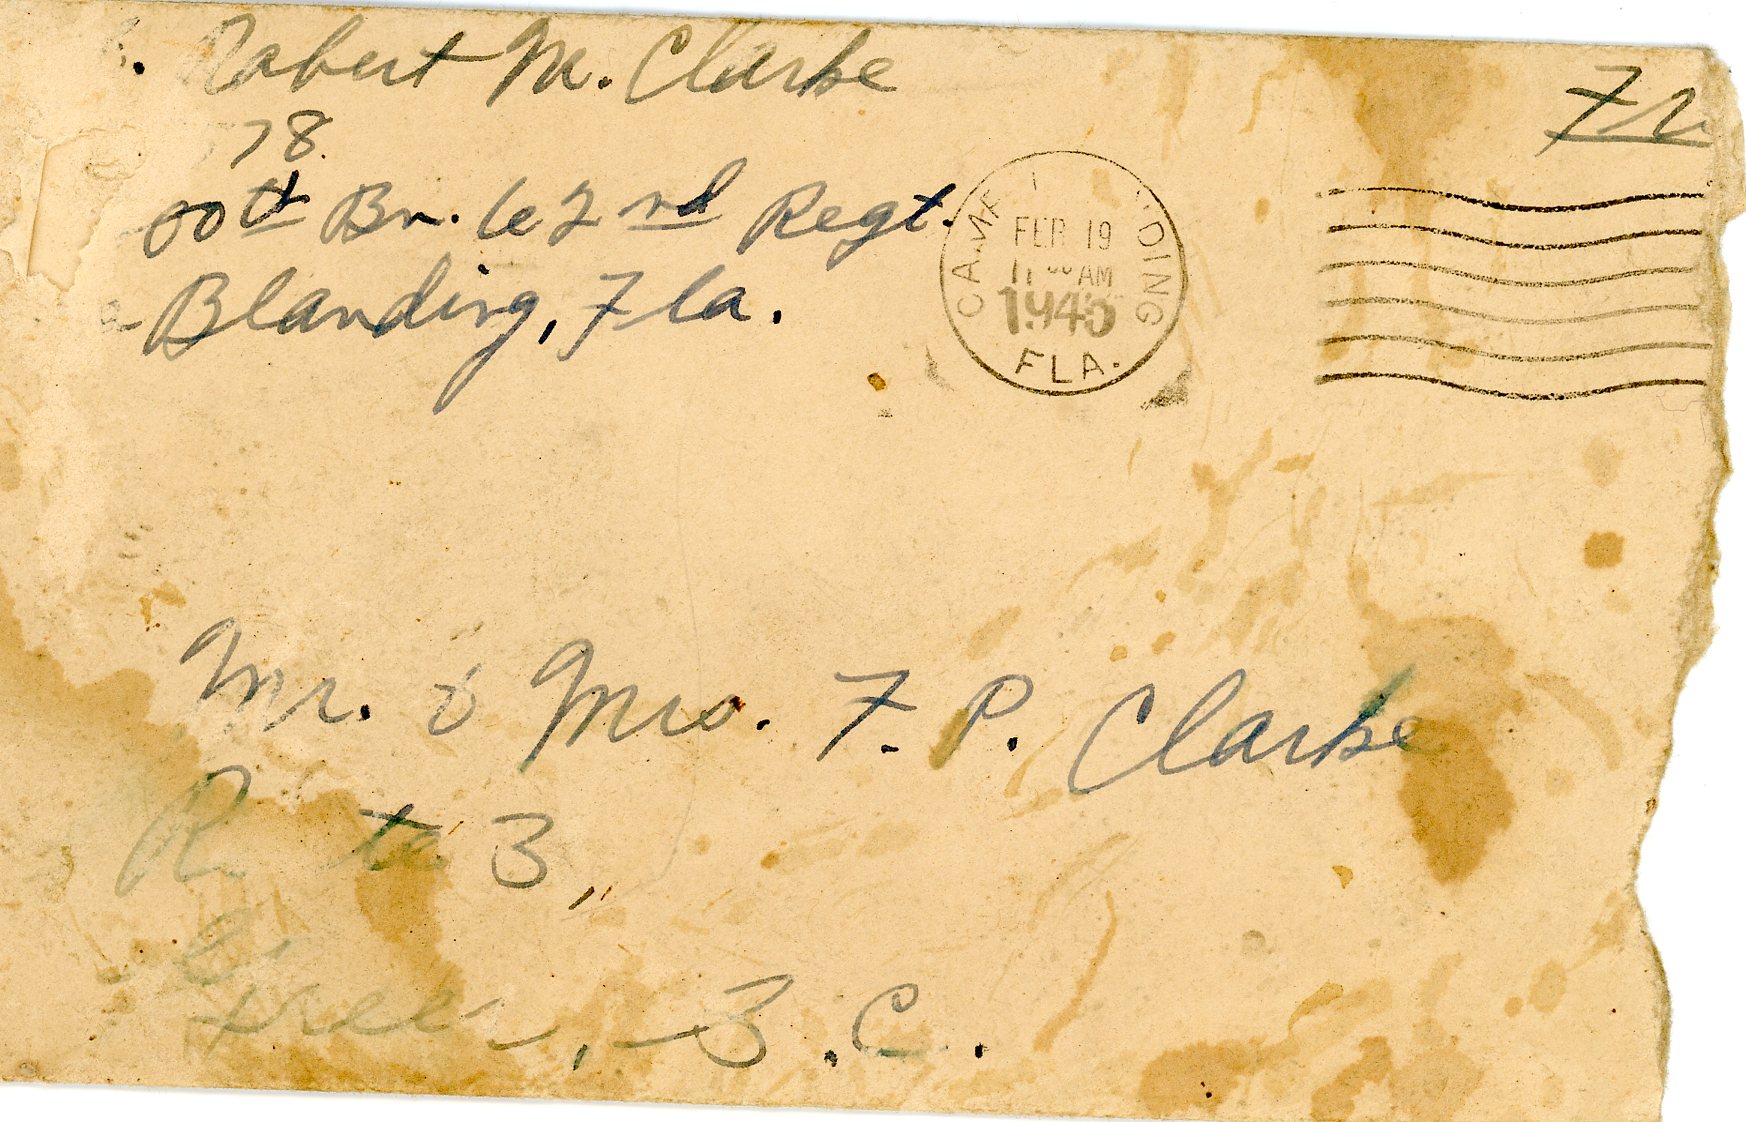 Robert M. Clarke
78
00th Bn. 62nd Regt.
Blanding, Fla.
FEB 19
11 00 AM
1945
FLA.
Mr. & Mrs. F. P. Clarke
3,
Greer, S.C.